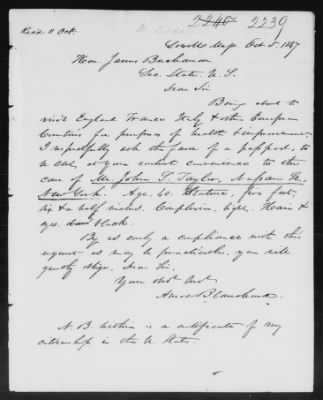 2240 2239
Rec'd 11 Oct.
Lowell Mass Oct 8. 1847
Hon. James Buchanan
Sec. State, U. S.
Dear Sir
Being about to
visit England France Italy & other European
Countries for purposes of health & improvement
I respectfully ask the favor of a passport, to
be sent, at your earliest convenience to the
care of Mr. John S. Taylor, Nassau St.
New York. Age, 40. Stature, five feet,
six & a half inches. Complexion, light. Hair &
eyes, black.
By as early a compliance with this
request as may be practicable, you will
greatly oblige, Dear Sir,
Your Obt Servt
Amos Blanchard.
N. B. Within is a certificate of my
citizenship in the U. States.